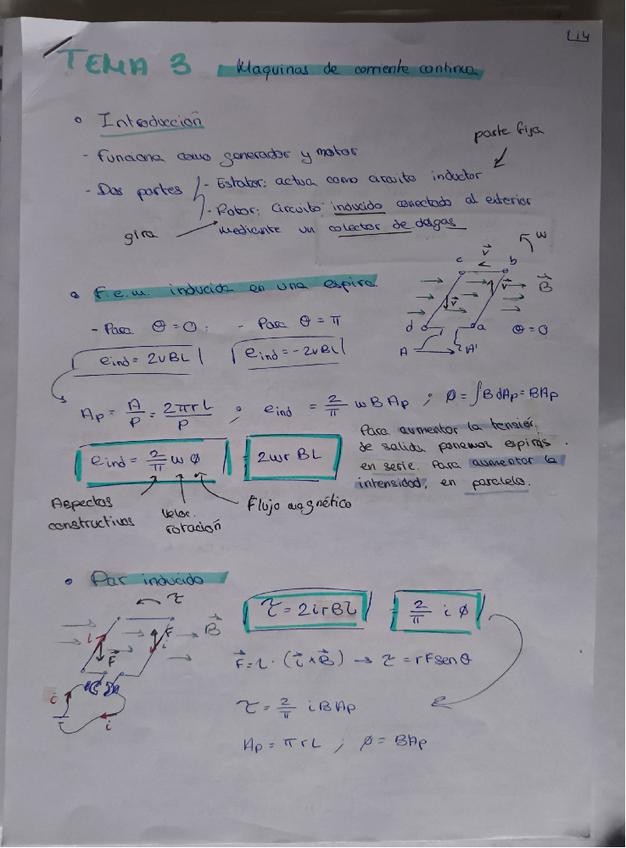 L14
TEMA 3 Maquinas de corriente continua
• Introducción
parte fija
- Funciona como generador y motor
- Dos partes - Estator: actua como circuito inductor
- Rotor: Circuito inducido conectado al exterior
gira mediante un colector de delgas
• F.e.m. inducida en una espira
c v b w
v v B
d a θ=0
A A'
- Para θ=0: - Para θ=π
eind = 2vBL eind = -2vBL
Ap = A/P = 2πrL/P ; eind = 2/π w B Ap ; ø = ∫B dAp = BAp
eind = 2/π w ø = 2wr BL
Para aumentar la tensión
de salida ponemos espiras
en serie. Para aumentar la
intensidad, en paralelo.
Aspectos constructivos
Veloc. rotación
Flujo magnético
• Par inducido
τ
B
i F F i
i
i
τ = 2irBL = 2/π i ø
F = L · (i × B) → τ = rFsenθ
τ = 2/π i B Ap
Ap = πrL ; ø = BAp